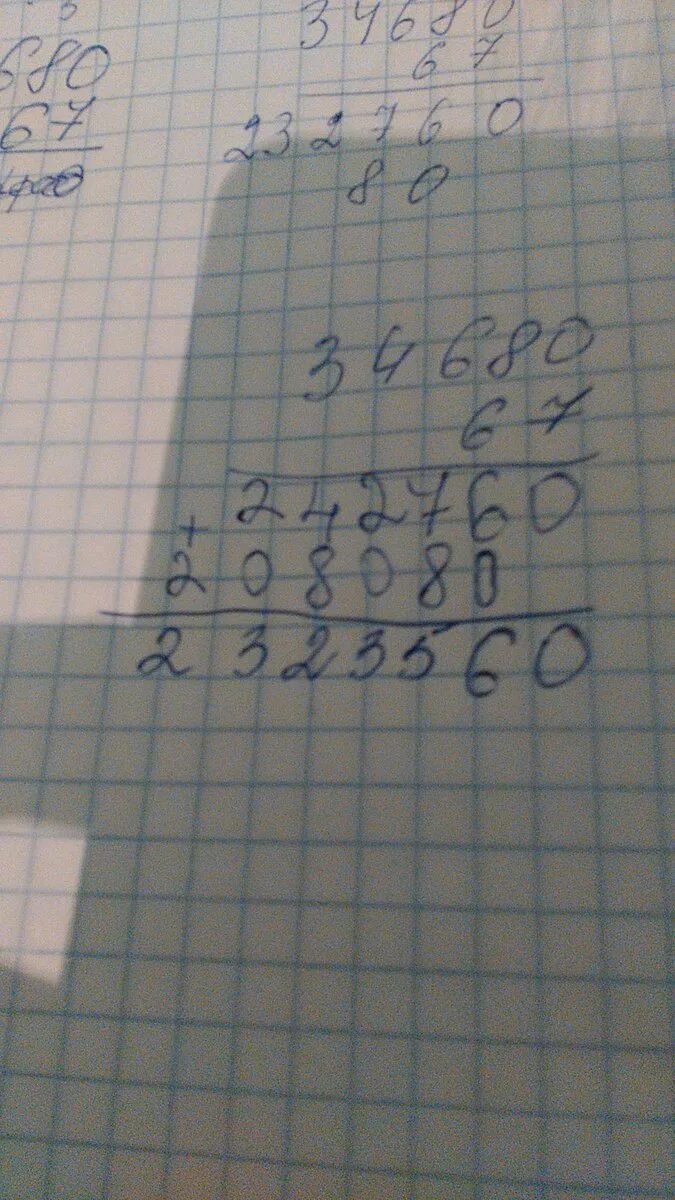 680
67
34680
67
232760
80
34680
67
242760
+
208080
2323560